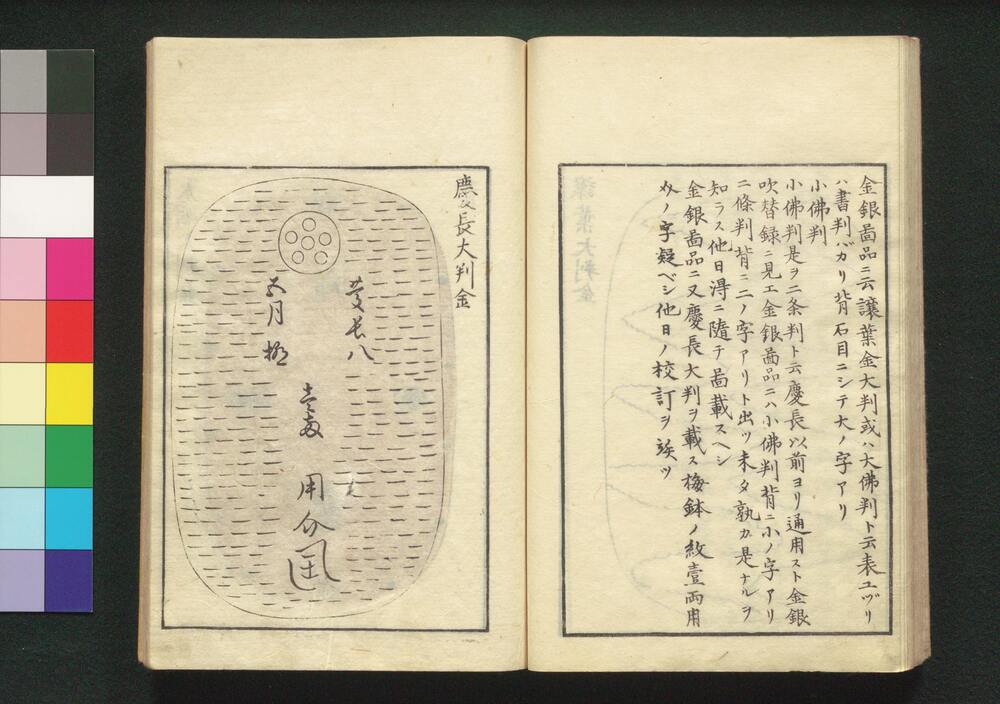 金銀啚品ニ云譲葉金大判或ハ大佛判ト云表ユヅリ
ハ書判バカリ背石目ニシテ大ノ字アリ
小佛判
小佛判是ヲ二条判ト云慶長以前ヨリ通用スト金銀
吹替録ニ見エ金銀啚品ニハ小佛判背ニ小ノ字アリ
二條判背ニ二ノ字アリト出ツ未タ孰カ是ナルヲ
知ラス他日淂ニ隨テ啚載スヘシ
金銀啚品ニ又慶長大判ヲ載ス梅鉢ノ紋壹両用
ノ字疑ベシ他日ノ校訂ヲ俟ツ
慶長大判金
慶長八
五月
壹両
用介